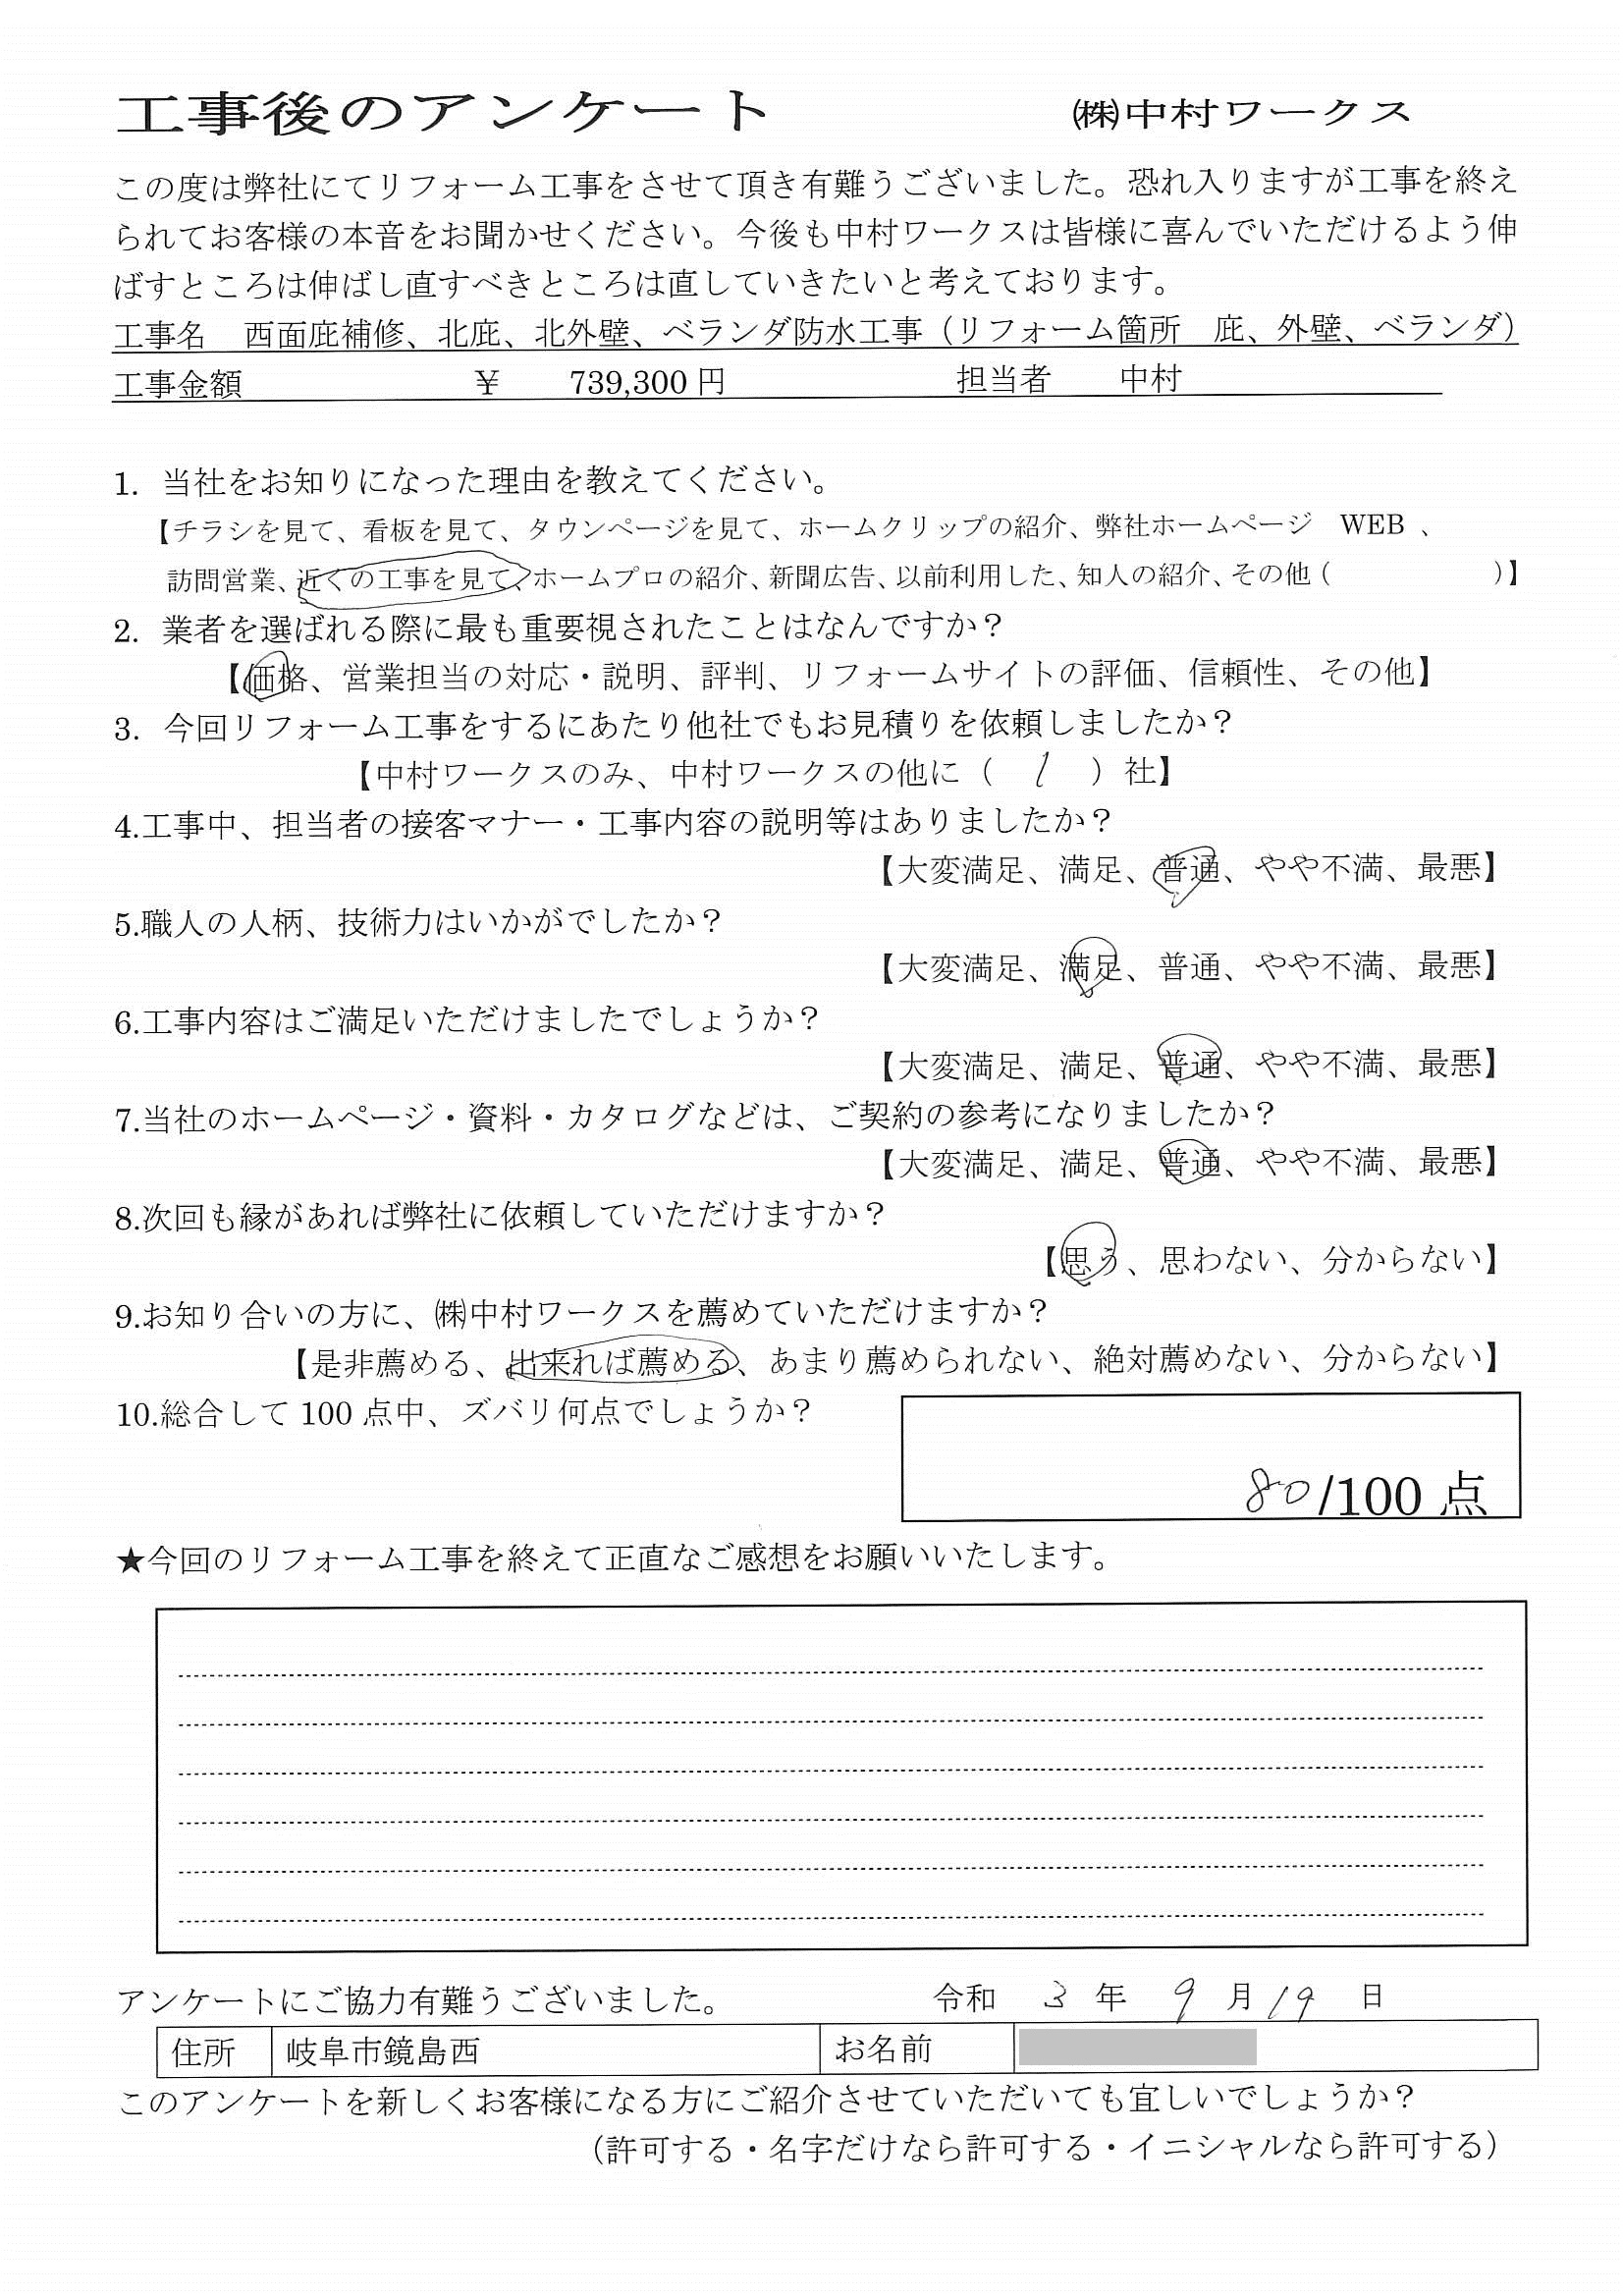 工事後のアンケート　㈱中村ワークス
この度は弊社にてリフォーム工事をさせて頂き有難うございました。恐れ入りますが工事を終え
られてお客様の本音をお聞かせください。今後も中村ワークスは皆様に喜んでいただけるよう伸
ばすところは伸ばし直すべきところは直していきたいと考えております。
工事名　西面庇補修、北庇、北外壁、ベランダ防水工事（リフォーム箇所　庇、外壁、ベランダ）
工事金額　￥　739,300 円　担当者　中村
1.  当社をお知りになった理由を教えてください。
【チラシを見て、看板を見て、タウンページを見て、ホームクリップの紹介、弊社ホームページ　WEB 、
訪問営業、近くの工事を見て、ホームプロの紹介、新聞広告、以前利用した、知人の紹介、その他（　　　　　）】
2.  業者を選ばれる際に最も重要視されたことはなんですか？
【価格、営業担当の対応・説明、評判、リフォームサイトの評価、信頼性、その他】
3.  今回リフォーム工事をするにあたり他社でもお見積りを依頼しましたか？
【中村ワークスのみ、中村ワークスの他に（　1　）社】
4.工事中、担当者の接客マナー・工事内容の説明等はありましたか？
【大変満足、満足、普通、やや不満、最悪】
5.職人の人柄、技術力はいかがでしたか？
【大変満足、満足、普通、やや不満、最悪】
6.工事内容はご満足いただけましたでしょうか？
【大変満足、満足、普通、やや不満、最悪】
7.当社のホームページ・資料・カタログなどは、ご契約の参考になりましたか？
【大変満足、満足、普通、やや不満、最悪】
8.次回も縁があれば弊社に依頼していただけますか？
【思う、思わない、分からない】
9.お知り合いの方に、㈱中村ワークスを薦めていただけますか？
【是非薦める、出来れば薦める、あまり薦められない、絶対薦めない、分からない】
10.総合して 100 点中、ズバリ何点でしょうか？
80/100 点
★今回のリフォーム工事を終えて正直なご感想をお願いいたします。
アンケートにご協力有難うございました。　令和　3　年　9　月 19　日
住所　岐阜市鏡島西　お名前
このアンケートを新しくお客様になる方にご紹介させていただいても宜しいでしょうか？
（許可する・名字だけなら許可する・イニシャルなら許可する）